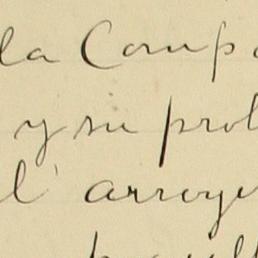 la Comp
y su prol
l arroy